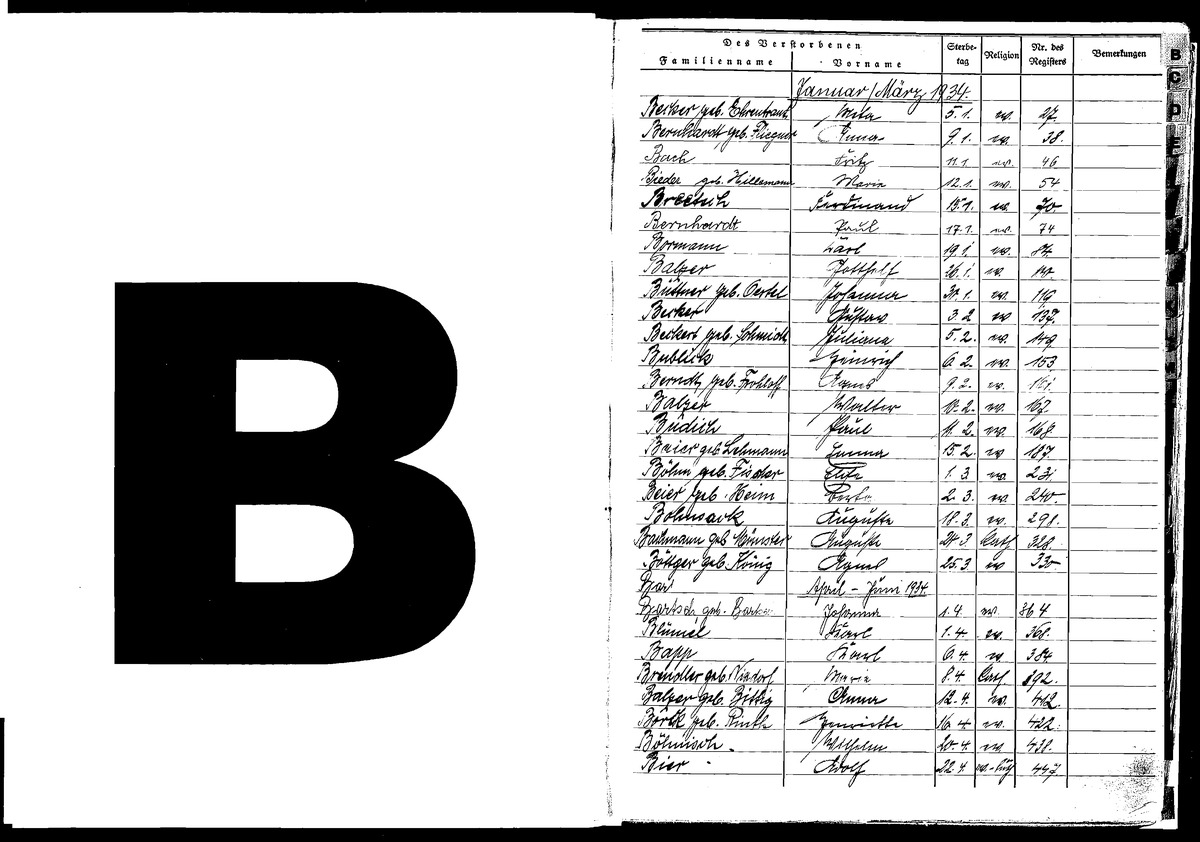 B
Des Verstorbenen Sterbe- Religion Nr. des Bemerkungen
Familienname Vorname tag Registers
Januar/März 1934.
Becker geb. Ehrentraut Meta 5.1. ev. 27.
Bernhardt, geb. Fliegner Anna 9.1. ev. 38.
Bach Fritz 11.1. ev. 46
Bieder geb. Hillemann Marie 12.1. ev. 54
Ferdinand 15.1. ev. 70.
Bernhardt Paul 17.1. ev. 74
Bormann Karl 19.1. ev. 84.
Balzer Gotthelf 26.1. ev.
Büttner geb. Oertel Johanna 30.1. ev. 116
Becker Gustav 3.2 ev 137.
Beckert geb. Schmidt Juliana 5.2. ev. 149.
Bublick Heinrich 6.2. ev. 153.
Berndt, geb. Frohloff Agnes 9.2. ev.
Balzer Walter 10.2. ev. 167.
Büdisch Paul 11.2. ev. 168.
Beier geb. Lehmann Emma 15.2. ev 187.
Böhm geb. Fischer 1.3 ev. 231.
Beier geb. Heim Berta 2.3. ev. 240.
Bohnsack Auguste 18.3. ev. 291.
Bachmann geb. Münster Auguste 24.3. Kath 328.
Böttger geb. König Agnes 25.3. ev 330
Bar April - Juni 1934.
Bartsch geb. Johanna 1.4. ev. 364
Blümel Karl 1.4. ev. 368.
Bapp Karl 6.4. ev. 384.
Brendler geb. Marie 8.4. Kath 392.
Balzer geb. Bittig Anna 12.4. ev. 412.
geb. Henriette 16.4. ev. 422.
Böhmisch Wilhelm 20.4. ev. 438.
Bier Adolf 22.4. 447.
B
C
D
E